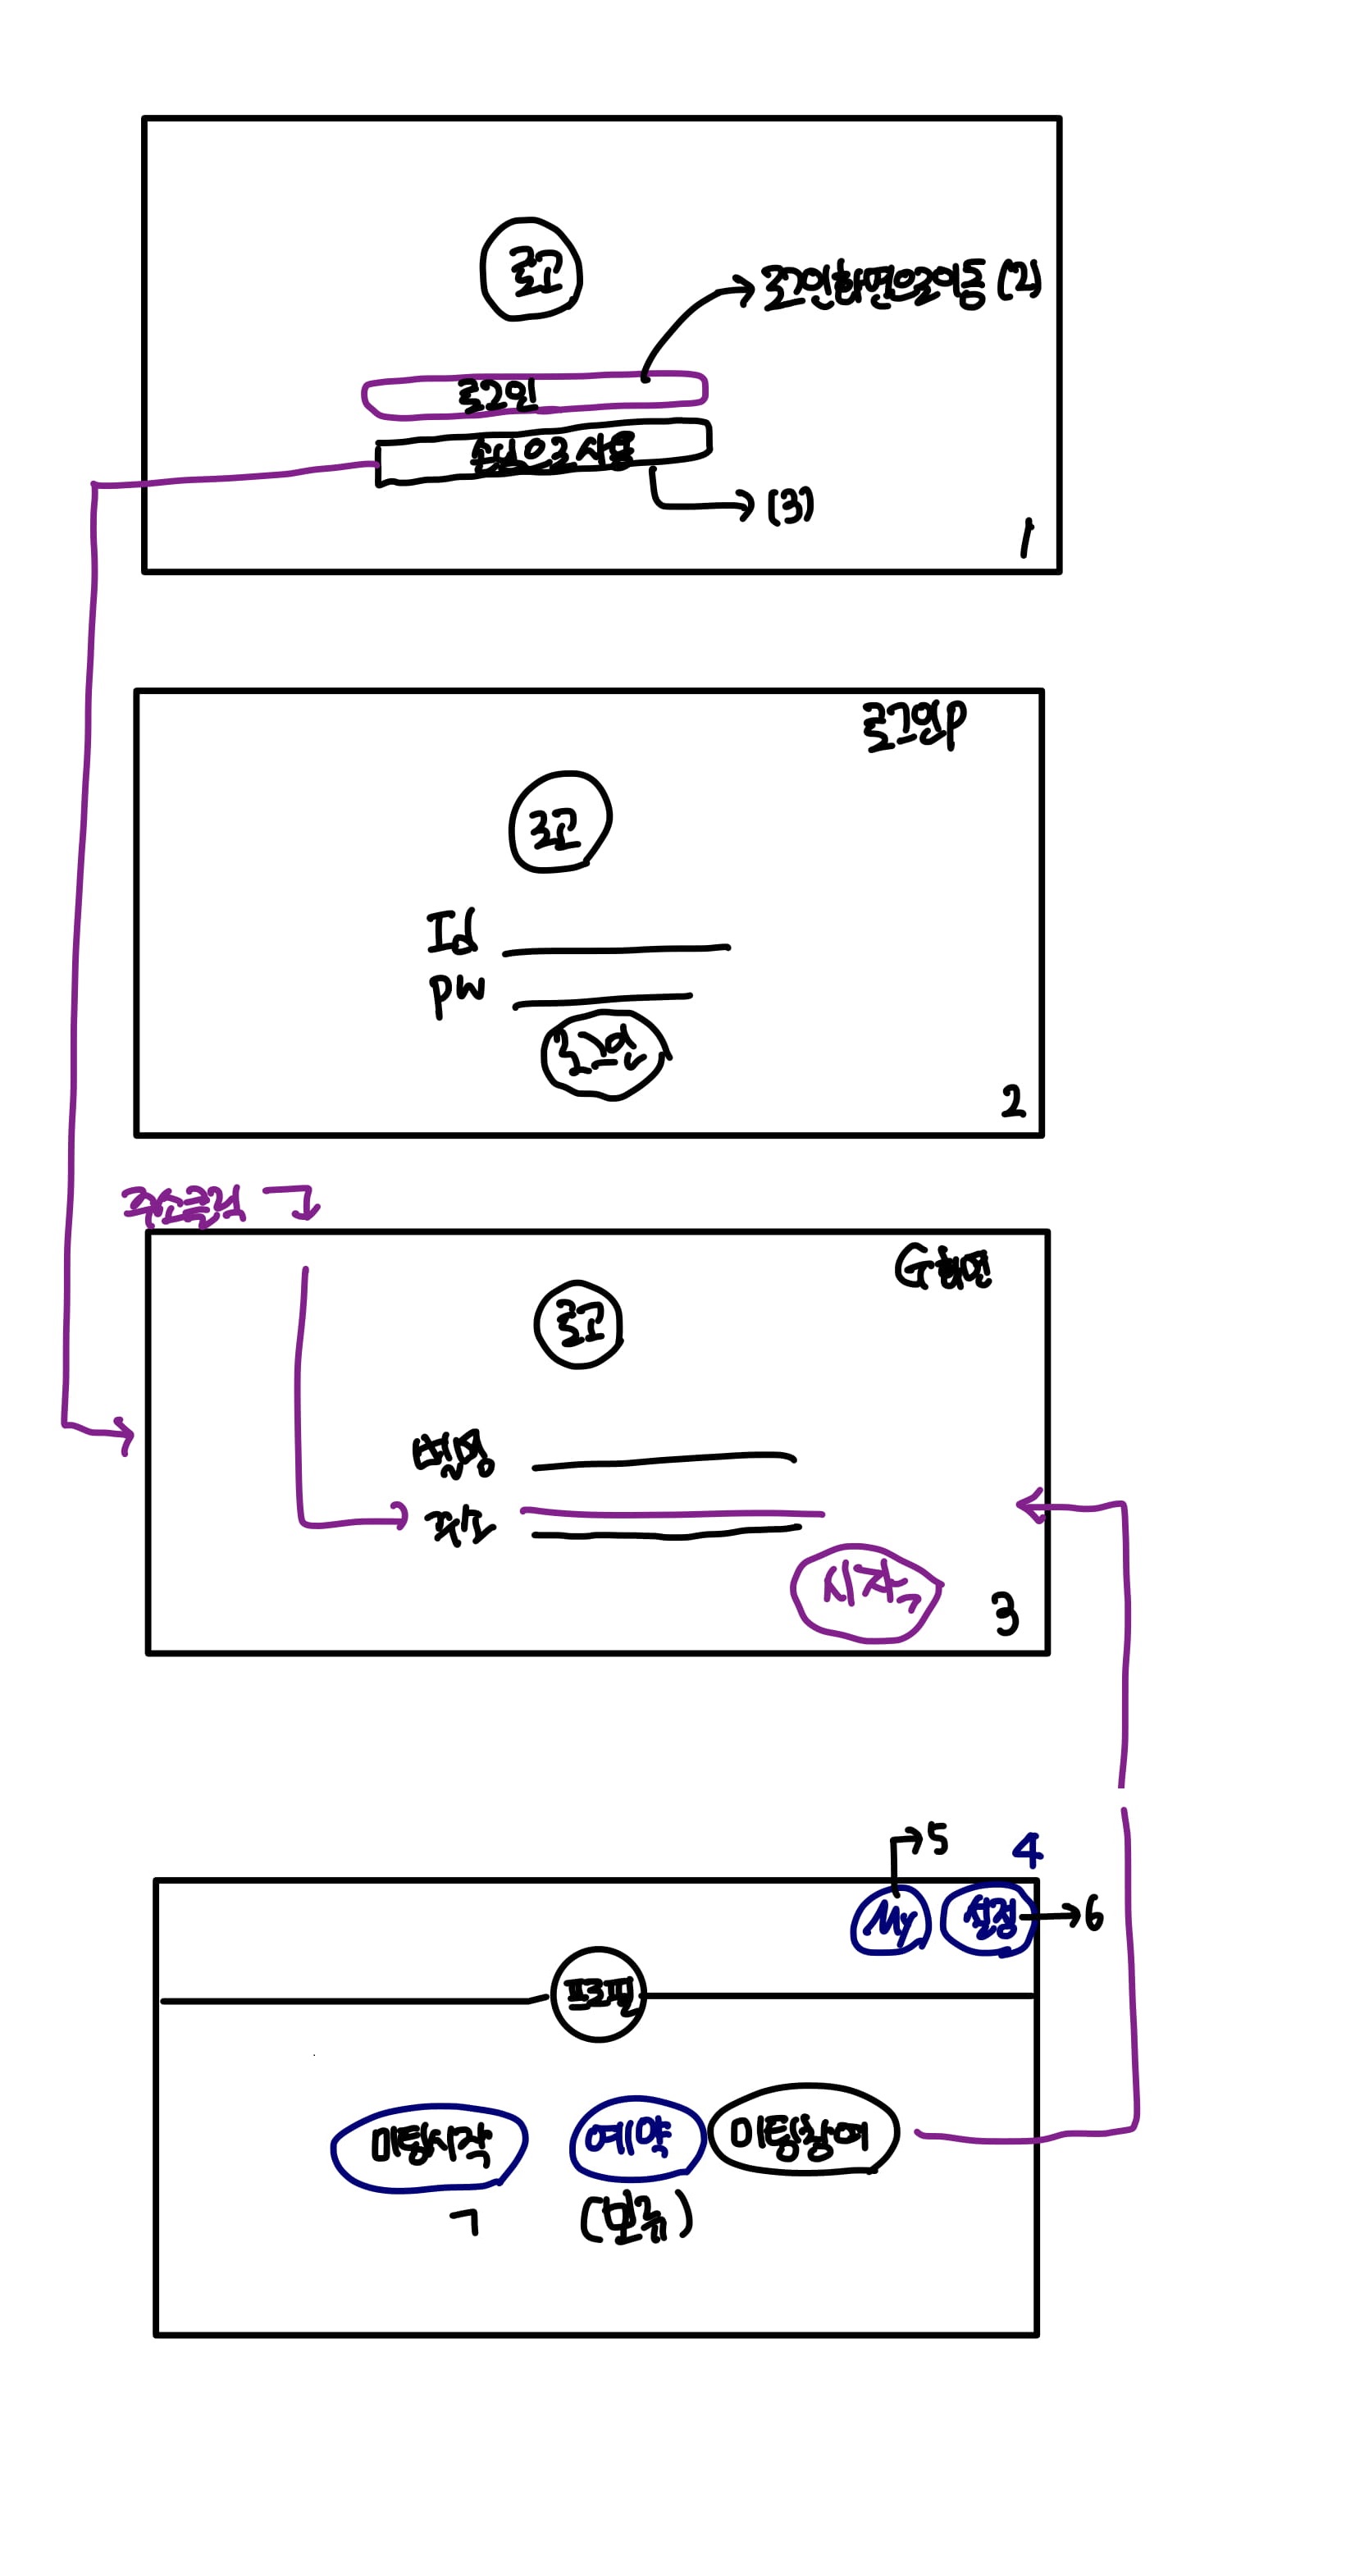 로고
로그인화면으로이동 (2)
로그인
손님으로 사용
(3)
1
로그인P
로고
Id
PW
로그인
2
주소클릭
G화면
로고
닉네임
주소
시작
3
5
4
My
설정
6
프로필
미팅시작
예약
미팅참여
7
(보류)